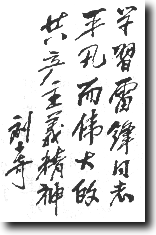 学習雷锋同志
平凡而伟大的
共产主義精神
劉少奇